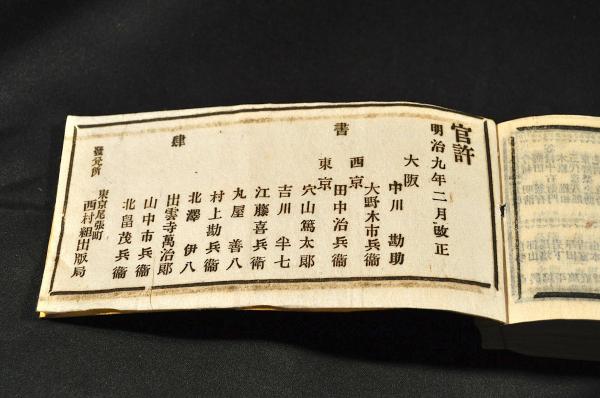 官許
明治九年二月改正
書肆
大阪
中川勘助
大野木市兵衞
西京
田中治兵衞
東京
穴山篤太郎
吉川半七
江藤喜兵衞
丸屋善八
村上勘兵衞
北澤伊八
出雲寺萬治郎
山中市兵衞
北畠茂兵衞
發兌所
東京尾張町
西村組出版局